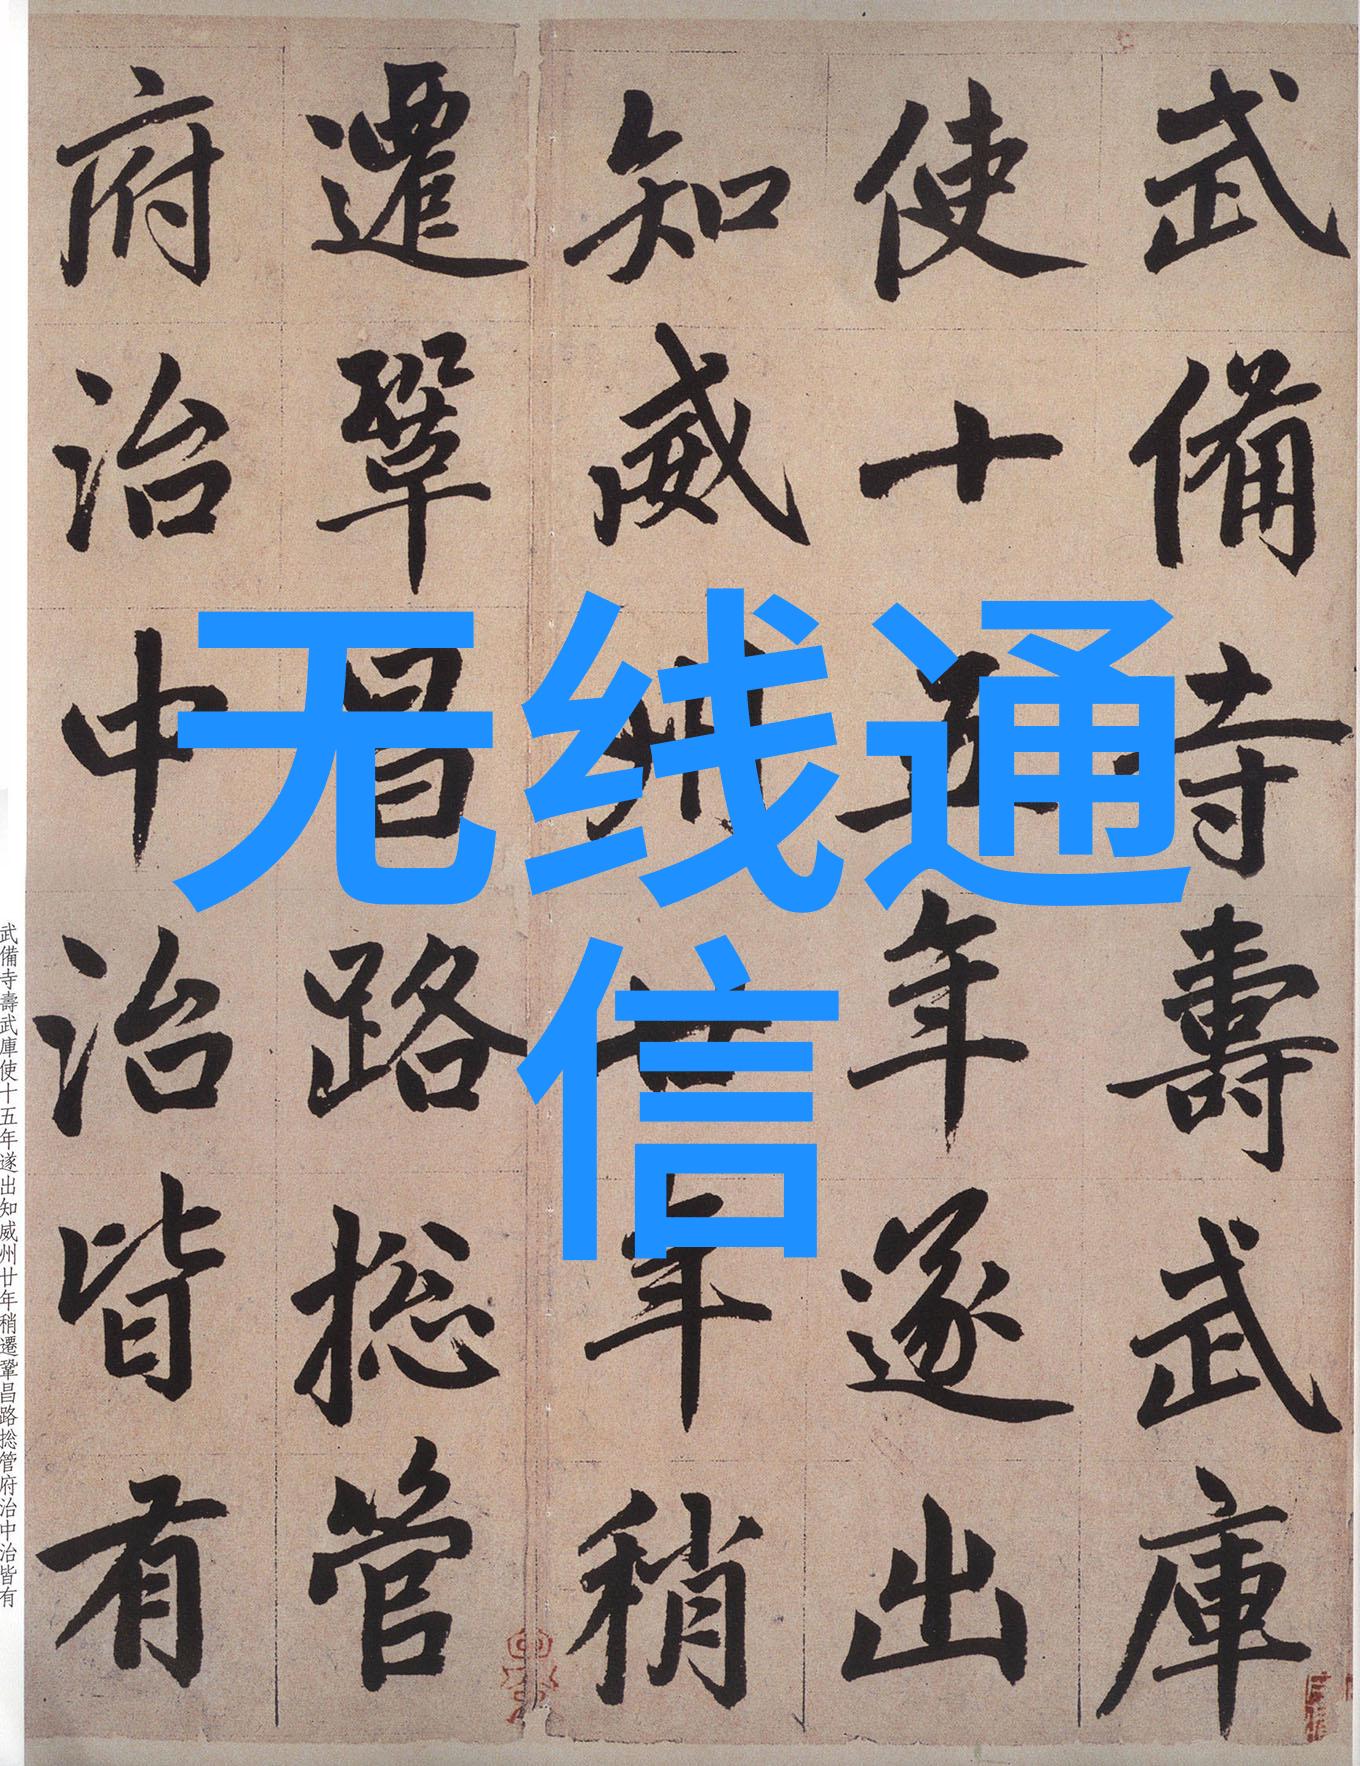 武備寺壽武庫
使十五年遂出
知威州廿年稍
遷鞏昌路捴管
府治中治皆有
无线通
信
武備寺壽武庫使十五年遂出知威州廿年稍遷鞏昌路捴管府治中治皆有